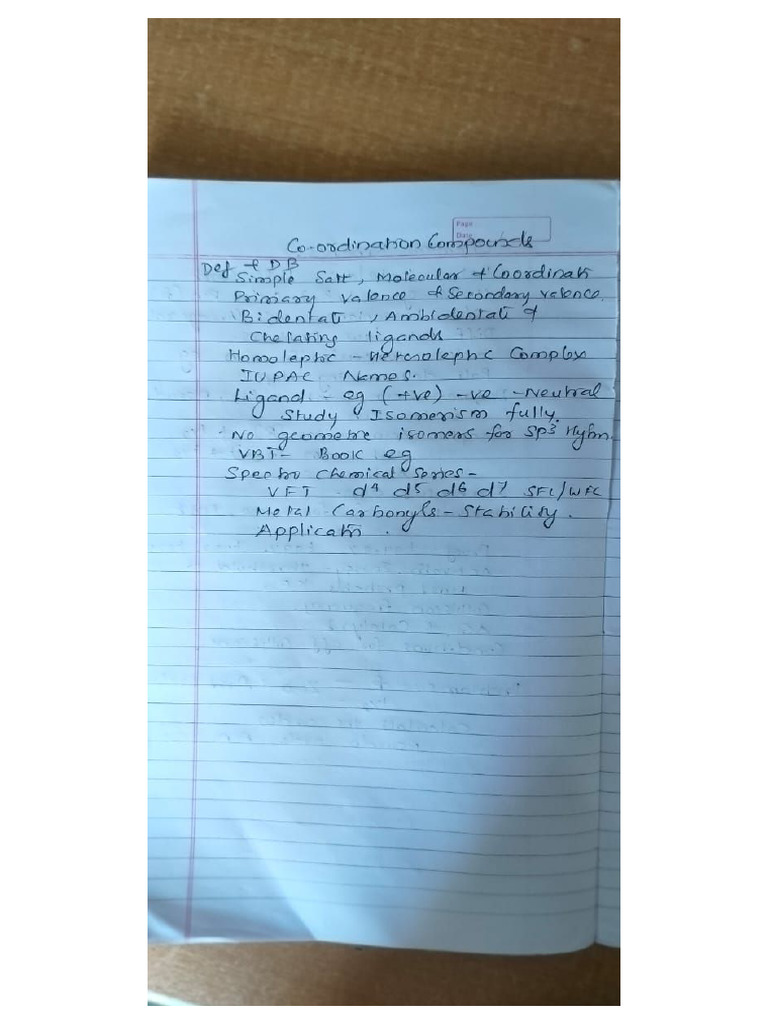 Page
Date
Co-ordination Compounds
Def & DB
Simple Salt, Molecular & Coordinati
Primary valence & Secondary valence.
Bidentati, Ambidentati &
Chelating ligands
Homoleptic - Heteroleptic Complex
IUPAC Names.
Ligand - eg (+ve) -ve -Neutral
Study Isomerism fully.
No geometric isomers for SP3 Hybn.
VBT- Book eg
Spectro Chemical Series-
VFT d4 d5 d6 d7 SFL/WFL
Metal Carbonyls - Stability.
Applicatn.